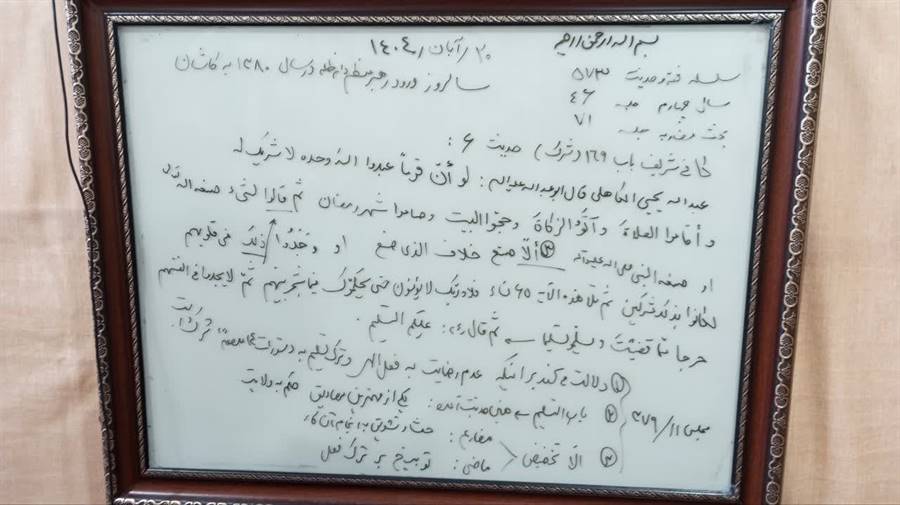 بسم الله الرحمن الرحیم
۳۰/آبان/۱۴۰۴
سلسله فقه و حدیث ۵۷۳
سالروز ورود رهبر معظم دام ظله در سال ۱۳۸۰ به کاشان
سال چهارم جلسه ۴۶
بحث جلسه ۷۱
کافی شریف باب ۱۶۹ (شرک) حدیث ۶ :
عبدالله یحیی الکاهلی قال ابوعبدالله علیه السلام : لو أنّ قوماً عبدوا الله وحده لا شریک له
و أقاموا الصلاة و آتَوُا الزکاة و حجّوا البیت و صاموا شهر رمضان ثم قالوا لشیء صنعه الله
او صنعه النبی صلی الله علیه وآله ③ ألّا صنع خلاف الذی صنع او وجدوا ذلک فی قلوبهم
لکانوا بذلک مشرکین ثم تلا هذه الآیة ۶۵ نساء فلا و ربک لا یؤمنون حتی یحکّموک فیما شجر بینهم ثمّ لا یجدوا فی انفسهم
حرجا ممّا قضیت و یسلّموا تسلیما ثم قال ع : علیکم بالتسلیم .
① دلالت می‌کند بر اینکه عدم رضایت به فعل الهی و ترک تسلیم به دستورات شرک است
② باب التسلیم همین حدیث آمده : یکی از مهمترین مصادیق حکم به ولایت
مجلسی ۱۱/۲۷۹
③ ألّا تحضیض مضارع : حث و تشویق به انجام آن کار
ماضی : توبیخ بر ترک فعل